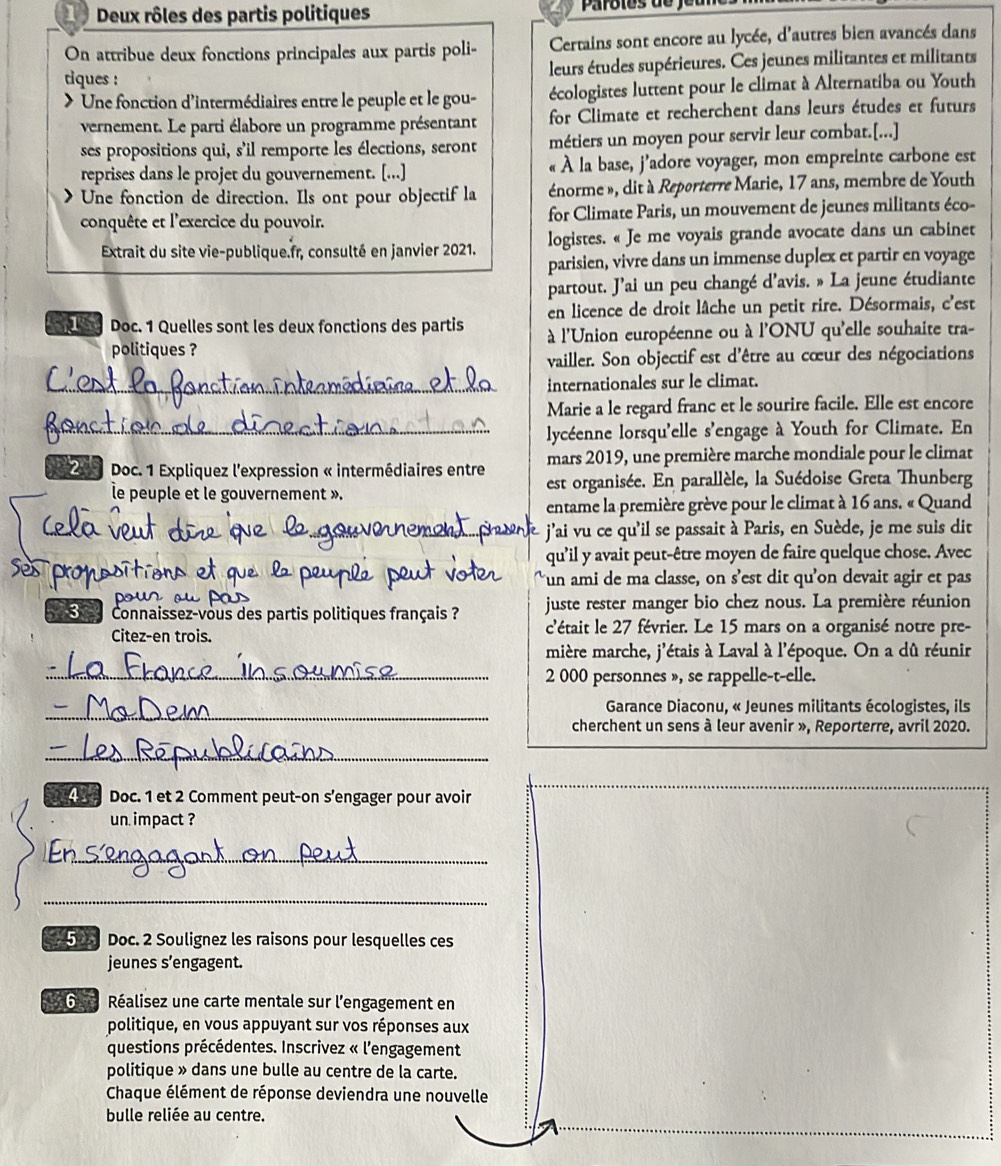 1 Deux rôles des partis politiques
On attribue deux fonctions principales aux partis poli-
tiques :
> Une fonction d'intermédiaires entre le peuple et le gou-
vernement. Le parti élabore un programme présentant
ses propositions qui, s'il remporte les élections, seront
reprises dans le projet du gouvernement. [...]
> Une fonction de direction. Ils ont pour objectif la
conquête et l'exercice du pouvoir.
Extrait du site vie-publique.fr, consulté en janvier 2021.
1 Doc. 1 Quelles sont les deux fonctions des partis
politiques ?
C'est la fonction intermédiaire et la
fonction de direction.
2 Doc. 1 Expliquez l'expression « intermédiaires entre
le peuple et le gouvernement ».
Celà veut dire que le gouvernement présente
ses propositions et que le peuple peut voter
pour ou pas
3 Connaissez-vous des partis politiques français ?
Citez-en trois.
- La France insoumise
- MoDem
- Les Républicains
4 Doc. 1 et 2 Comment peut-on s'engager pour avoir
un impact ?
En s'engagant on peut
5 Doc. 2 Soulignez les raisons pour lesquelles ces
jeunes s'engagent.
6 Réalisez une carte mentale sur l'engagement en
politique, en vous appuyant sur vos réponses aux
questions précédentes. Inscrivez « l'engagement
politique » dans une bulle au centre de la carte.
Chaque élément de réponse deviendra une nouvelle
bulle reliée au centre.
2 Paroles de
Certains sont encore au lycée, d'autres bien avancés dans
leurs études supérieures. Ces jeunes militantes et militants
écologistes luttent pour le climat à Alternatiba ou Youth
for Climate et recherchent dans leurs études et futurs
métiers un moyen pour servir leur combat.[...]
« À la base, j'adore voyager, mon empreinte carbone est
énorme », dit à Reporterre Marie, 17 ans, membre de Youth
for Climate Paris, un mouvement de jeunes militants éco-
logistes. « Je me voyais grande avocate dans un cabinet
parisien, vivre dans un immense duplex et partir en voyage
partout. J'ai un peu changé d'avis. » La jeune étudiante
en licence de droit lâche un petit rire. Désormais, c'est
à l'Union européenne ou à l'ONU qu'elle souhaite tra-
vailler. Son objectif est d'être au cœur des négociations
internationales sur le climat.
Marie a le regard franc et le sourire facile. Elle est encore
lycéenne lorsqu'elle s'engage à Youth for Climate. En
mars 2019, une première marche mondiale pour le climat
est organisée. En parallèle, la Suédoise Greta Thunberg
entame la première grève pour le climat à 16 ans. « Quand
j'ai vu ce qu'il se passait à Paris, en Suède, je me suis dit
qu'il y avait peut-être moyen de faire quelque chose. Avec
un ami de ma classe, on s'est dit qu'on devait agir et pas
juste rester manger bio chez nous. La première réunion
c'était le 27 février. Le 15 mars on a organisé notre pre-
mière marche, j'étais à Laval à l'époque. On a dû réunir
2 000 personnes », se rappelle-t-elle.
Garance Diaconu, « Jeunes militants écologistes, ils
cherchent un sens à leur avenir », Reporterre, avril 2020.